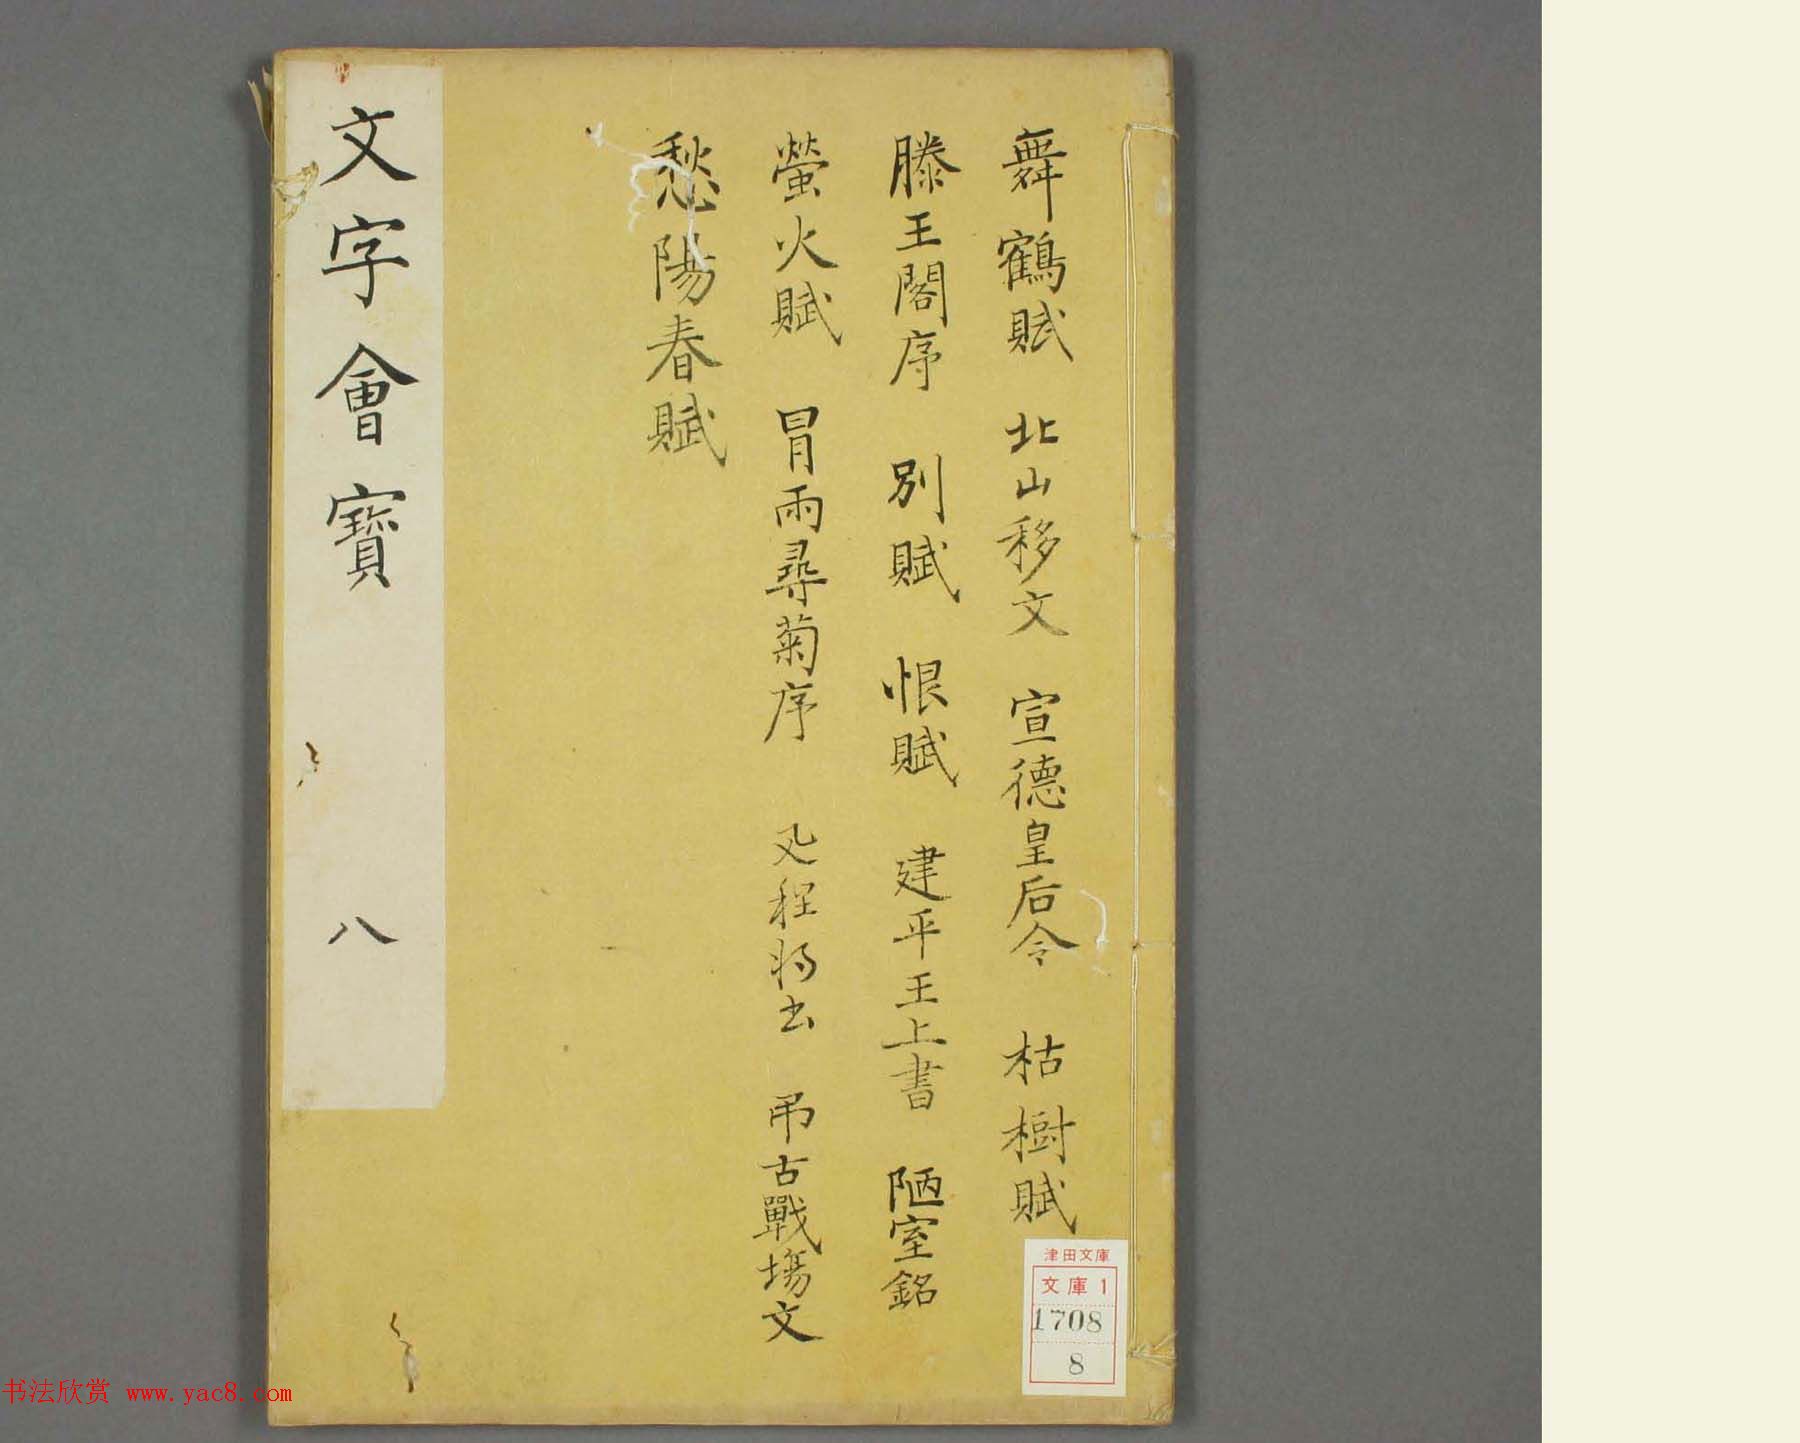 舞鶴賦 北山移文 宣德皇后令 枯樹賦
滕王閣序 別賦 恨賦 建平王上書 陋室銘
螢火賦 冒雨尋菊序 程将 弔古戰場文
愁陽春賦
文字會寳 八
津田文庫
文庫 1
1708
8
书法欣赏 www.yac8.com